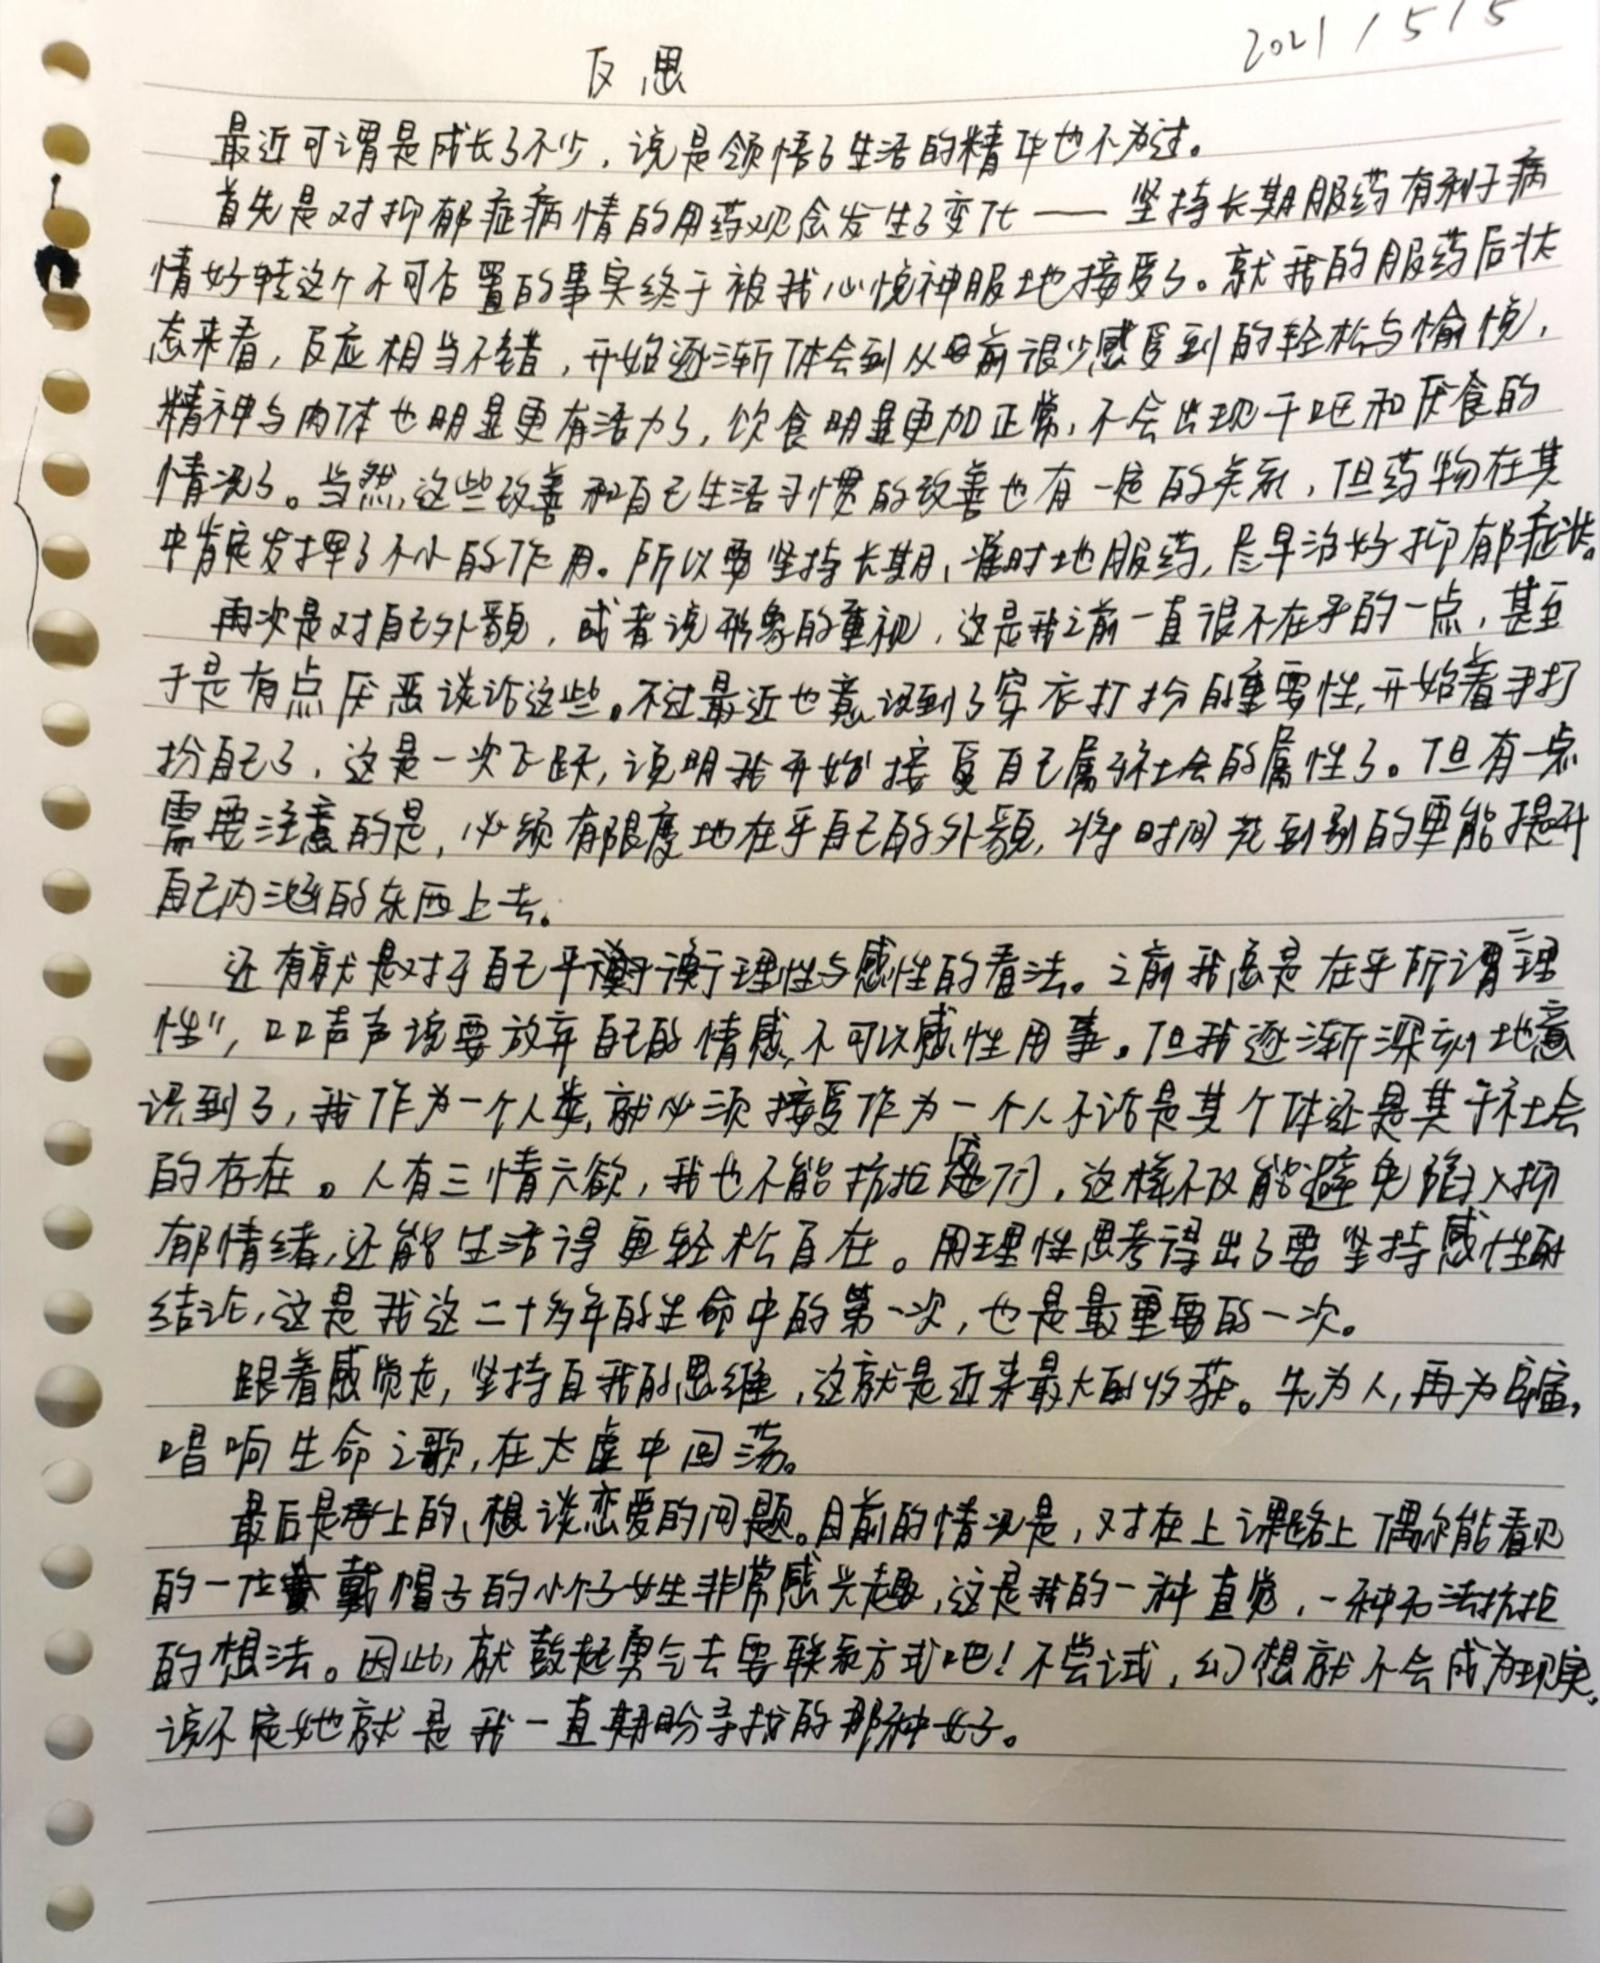 2021/5/5
反思
最近可谓是成长了不少，说是领悟了生活的精华也不为过。
首先是对抑郁症病情的用药观念发生了变化——坚持长期服药有利于病
情好转这个不可否置的事实终于被我心悦神服地接受了。就我的服药后状
态来看，反应相当不错，开始逐渐体会到从前很少感受到的轻松与愉悦，
精神与肉体也明显更有活力了，饮食明显更加正常，不会出现干呕和厌食的
情况了。当然，这些改善和自己生活习惯的改善也有一定的关系，但药物在其
中肯定发挥了不小的作用。所以要坚持长期、准时地服药，尽早治好抑郁症状。
再次是对自己外貌，或者说形象的重视，这是我之前一直很不在乎的一点，甚至
于是有点厌恶谈论这些。不过最近也意识到了穿衣打扮的重要性，开始着手打
扮自己了，这是一次飞跃，说明我开始接受自己属于社会的属性了。但有一点
需要注意的是，必须有限度地在乎自己的外貌，将时间花到别的更能提升
自己内涵的东西上去。
还有就是对于自己平衡理性与感性的看法。之前我总是在乎所谓“理
性”，口口声声说要放弃自己的情感，不可以感性用事。但我逐渐深刻地意
识到了，我作为一个人类，就必须接受作为一个人不论是其个体还是其于社会
的存在。人有三情六欲，我也不能抗拒它们，这样不仅能避免陷入抑
郁情绪，还能生活得更轻松自在。用理性思考得出了要坚持感性的
结论，这是我这二十多年的生命中的第一次，也是最重要的一次。
跟着感觉走，坚持自我的思维，这就是近来最大的收获。先为人，再为宇宙，
唱响生命之歌，在太虚中回荡。
最后是早上的、想谈恋爱的问题。目前的情况是，对在上课路上偶尔能看见
的一位戴帽子的小个子女生非常感兴趣，这是我的一种直觉，一种无法抗拒
的想法。因此，就鼓起勇气去要联系方式吧！不尝试，幻想就不会成为现实。
说不定她就是我一直期盼寻找的那种女子。